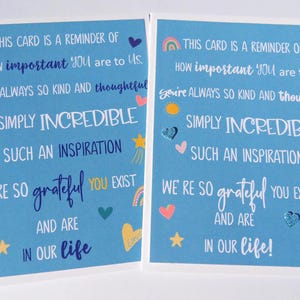 THIS CARD IS A REMINDER OF
important YOU are to US.
ALWAYS SO KIND AND thoughtful
SIMPLY INCREDIBLE
SUCH AN INSPIRATION
RE SO grateful YOU EXIST
AND ARE
IN OUR life
THIS CARD IS A REMINDER OF
HOW important YOU are
you're ALWAYS SO KIND AND
SIMPLY INCREDIB
SUCH AN INSPIRATION
WE'RE SO grateful YOU EX
AND ARE
IN OUR life!